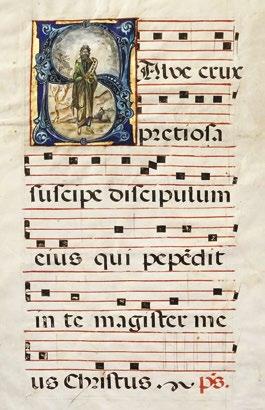 Salve crux
pretiosa
suscipe discipulum
eius qui pepēdit
in te magister me
us Christus. ps.